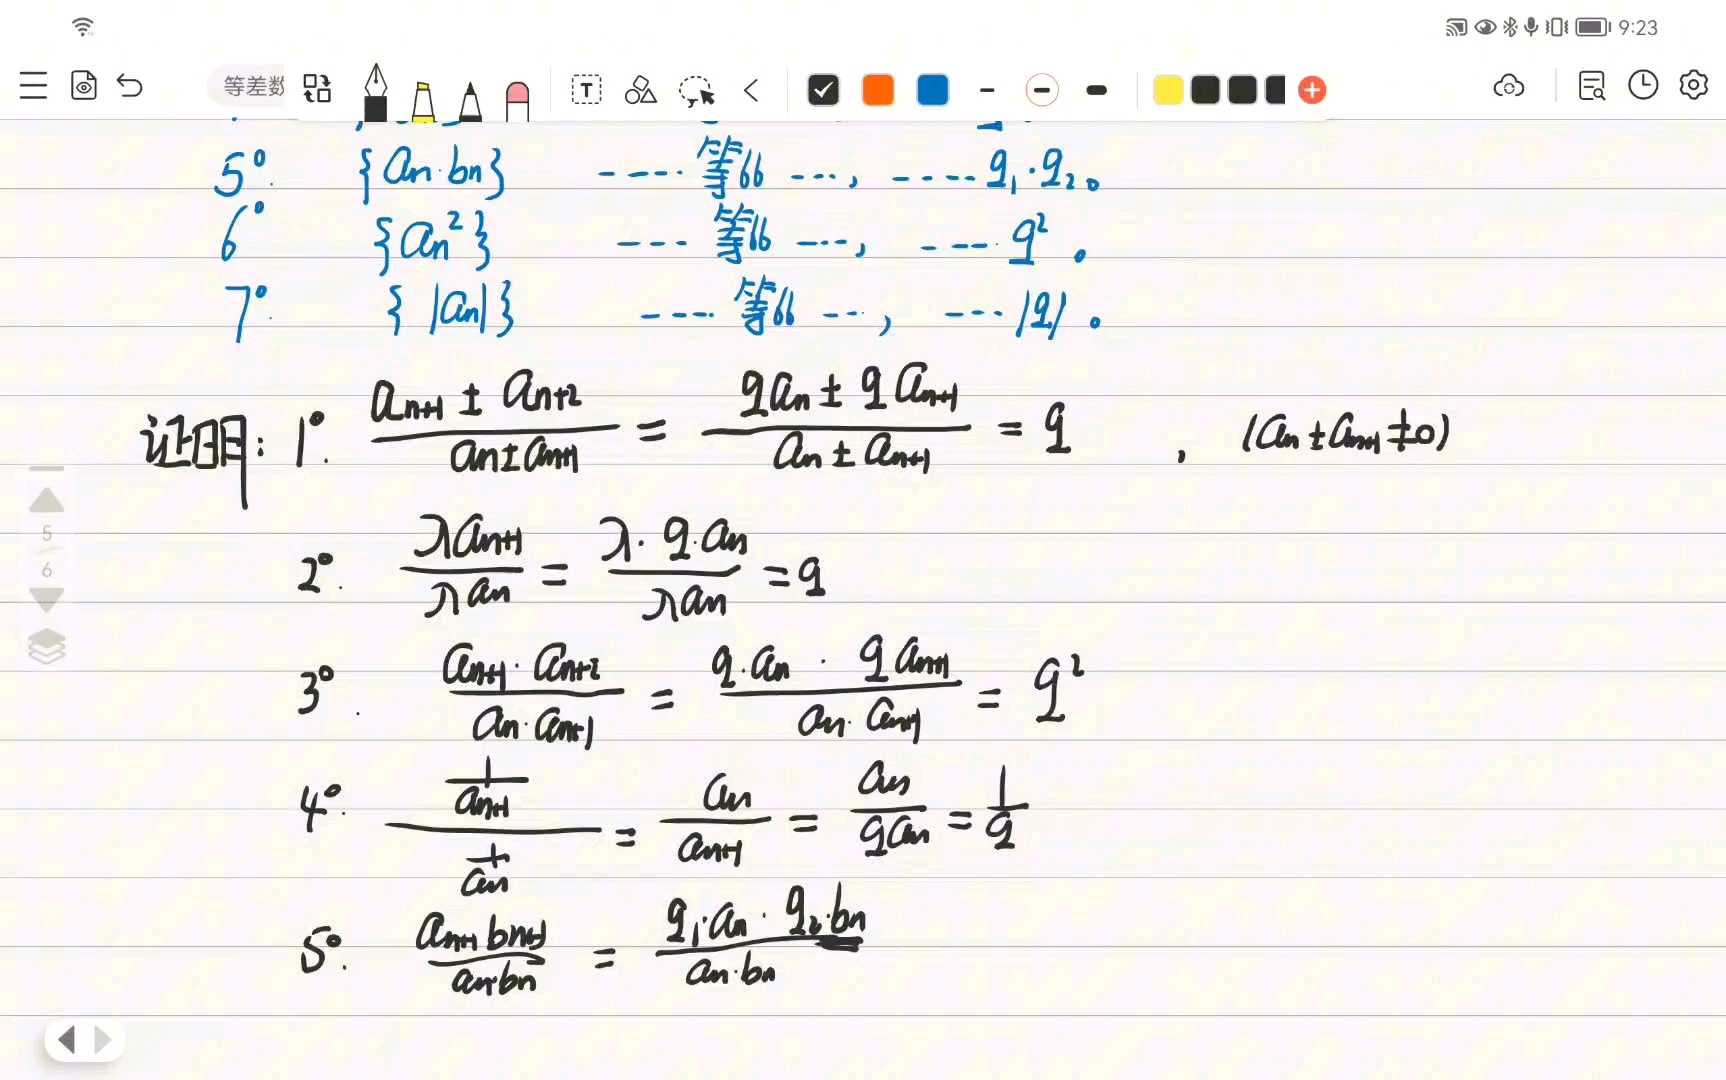 9:23
等差数
5°. {an·bn} ---- 等比 ---, ---- q₁·q₂。
6° {an²} ---- 等比 ---, ---- q²。
7°. {|an|} ---- 等比 ---, --- |q|。
证明: 1°. (an+1 ± an+2)/(an ± an+1) = (qan ± qan+1)/(an ± an+1) = q , (an ± an+1 ≠ 0)
2°. λan+1/λan = λ·q·an/λan = q
3°. (an+1·an+2)/(an·an+1) = (q·an · qan+1)/(an·an+1) = q²
4°. (1/an+1)/(1/an) = an/an+1 = an/qan = 1/q
5°. (an+1 bn+1)/(an·bn) = (q₁·an · q₂·bn)/(an·bn)
5
6